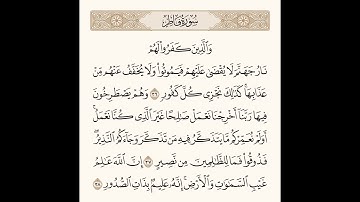 سورة فاطر
والذين كفروا لهم
نار جهنم لا يقضى عليهم فيموتوا ولا يخفف عنهم من
عذابها كذلك نجزي كل كفور ٣٦ وهم يصطرخون
فيها ربنا أخرجنا نعمل صالحا غير الذي كنا نعمل
أولم نعمركم ما يتذكر فيه من تذكر وجاءكم النذير
فذوقوا فما للظالمين من نصير ٣٧ إن الله عالم
غيب السماوات والأرض إنه عليم بذات الصدور ٣٨